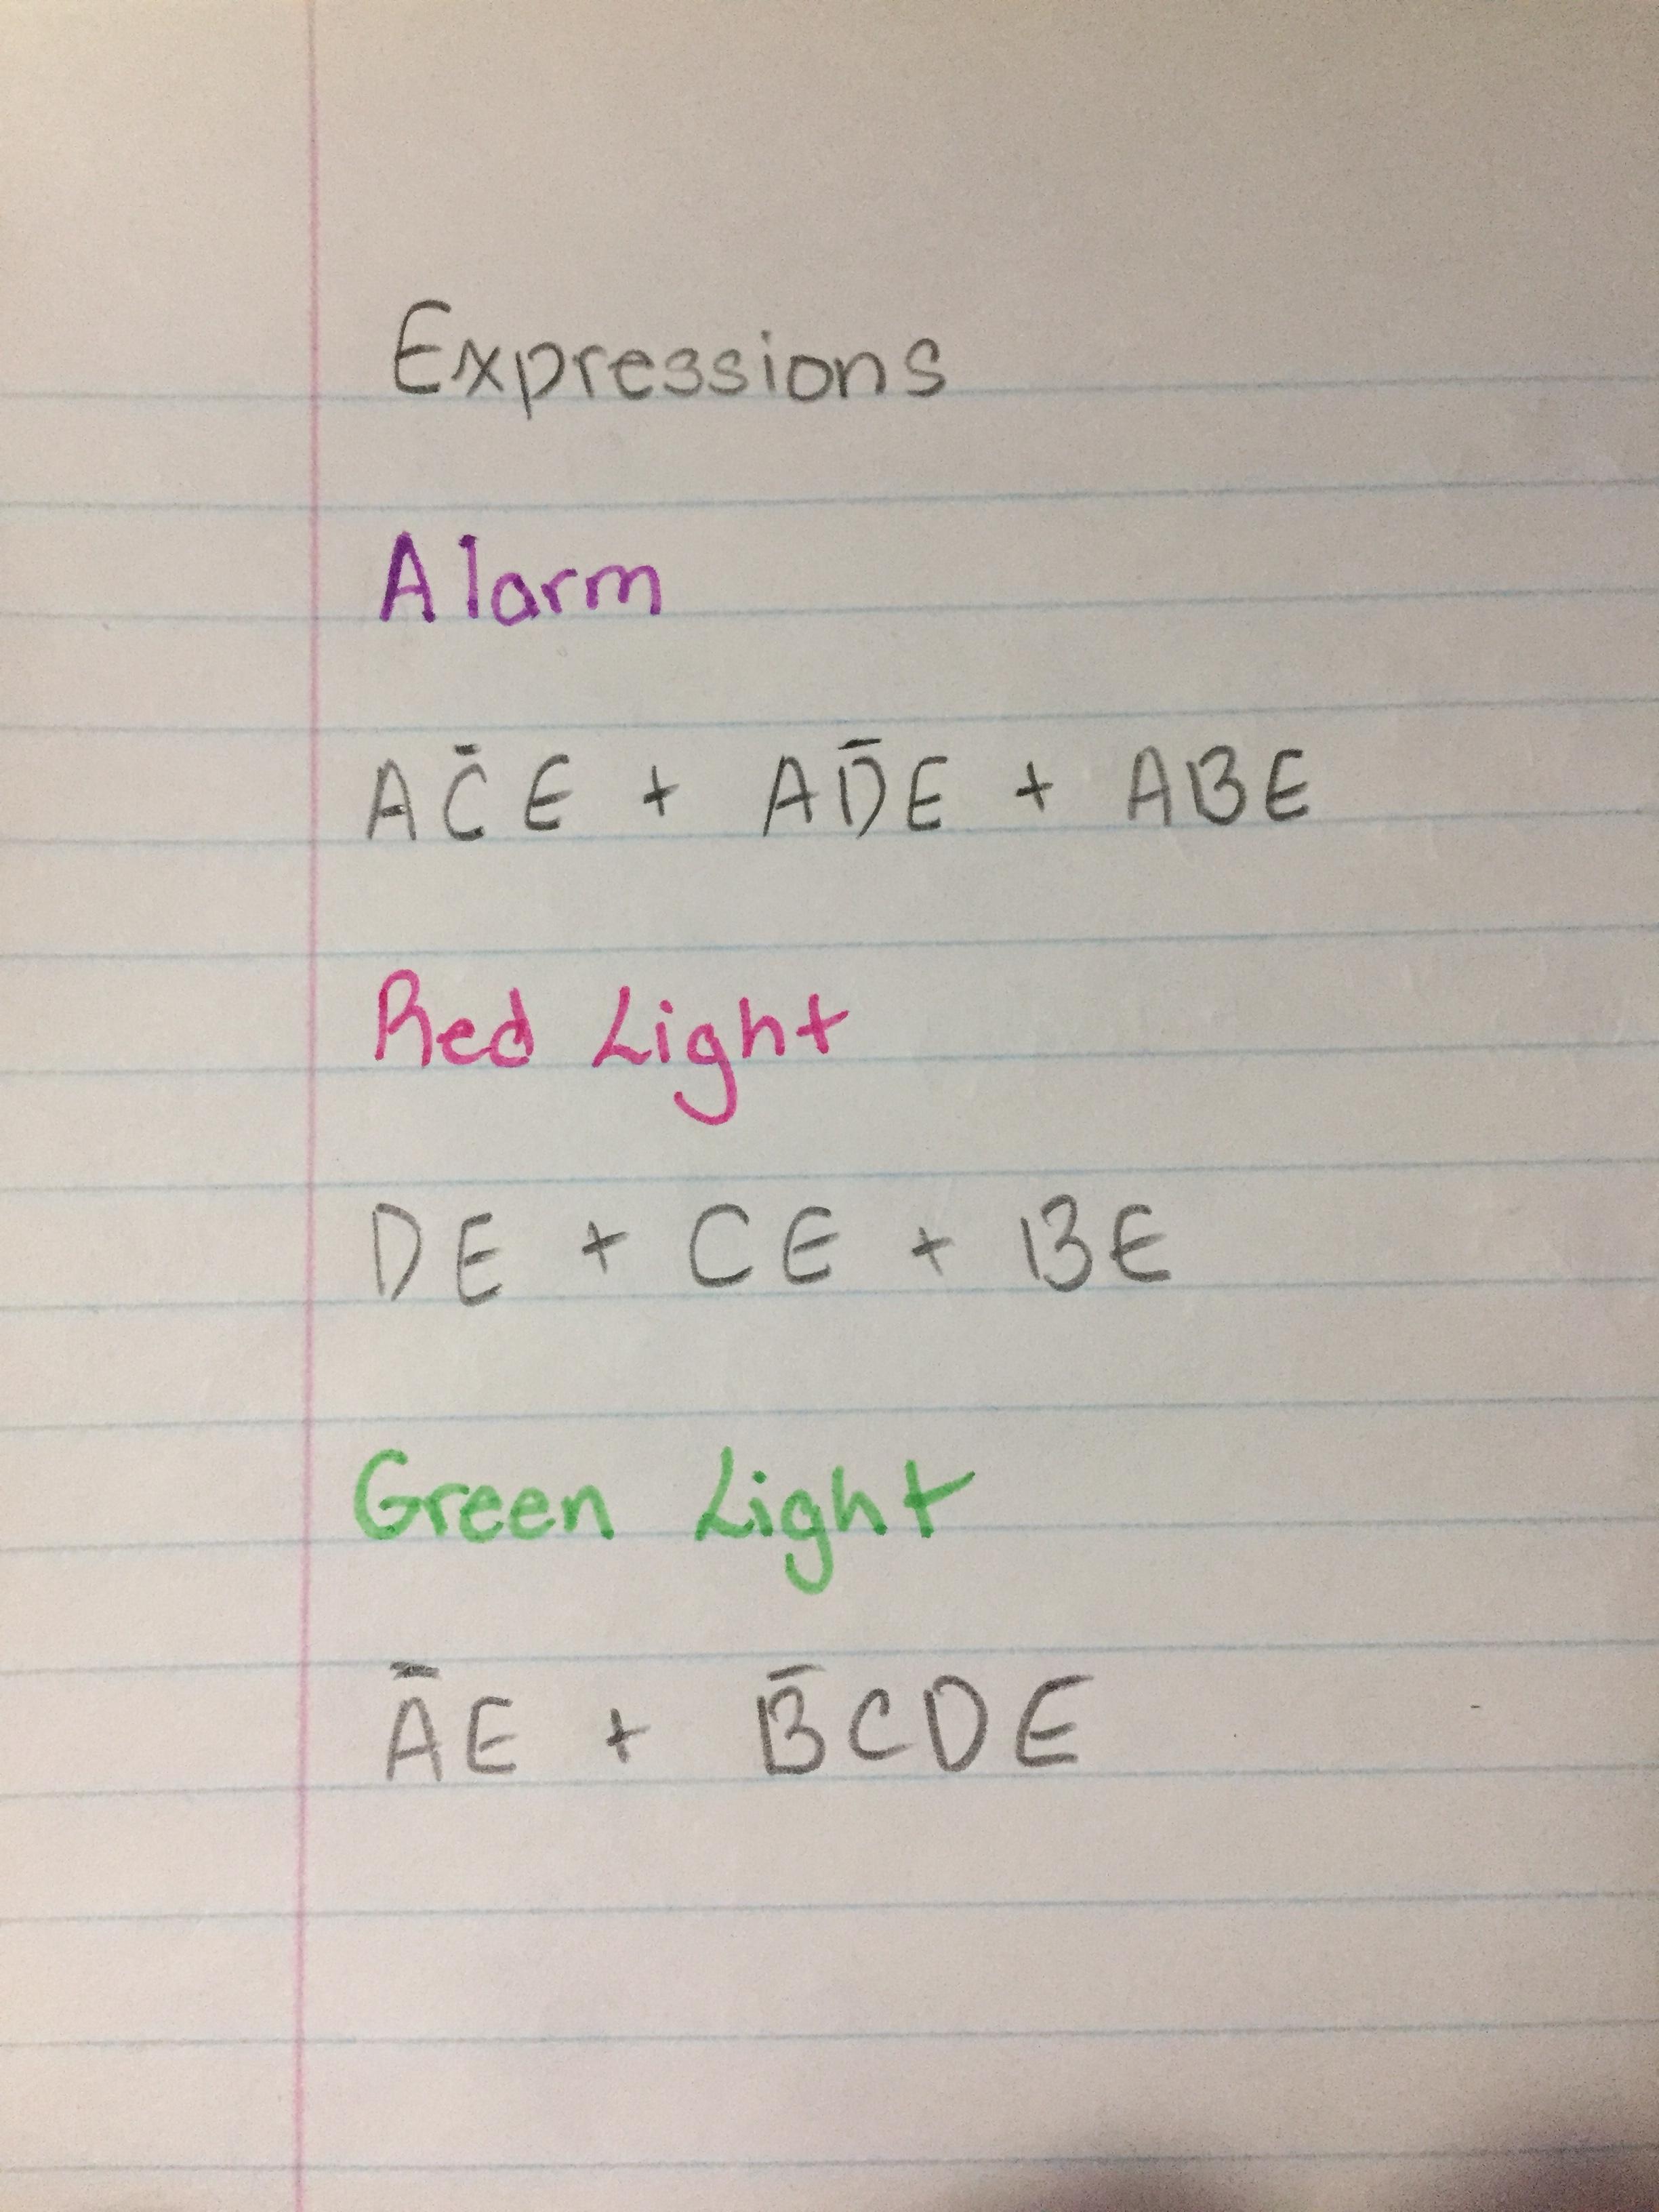 Expressions
Alarm
AC̄E + AD̄E + ABE
Red Light
DE + CE + BE
Green Light
ĀE + B̄CDE